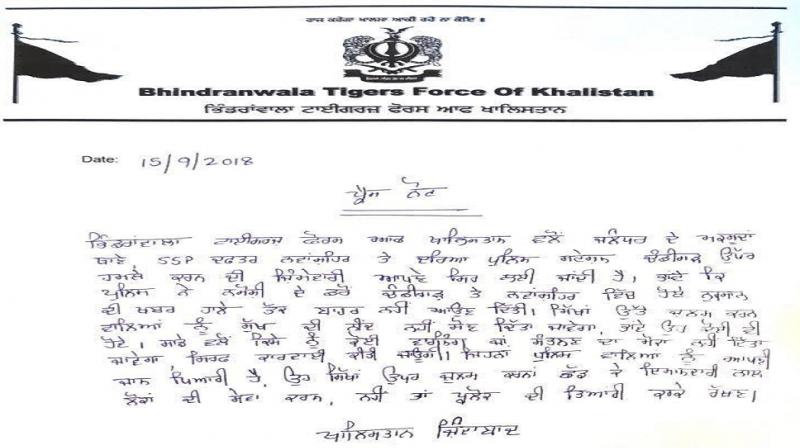 ਰਾਜ ਕਰੇਗਾ ਖਾਲਸਾ ਆਕੀ ਰਹੇ ਨਾ ਕੋਇ ॥
Bhindranwala Tigers Force Of Khalistan
ਭਿੰਡਰਾਂਵਾਲਾ ਟਾਈਗਰਜ਼ ਫੋਰਸ ਆਫ ਖਾਲਿਸਤਾਨ
Date: 15/9/2018
ਪ੍ਰੈਸ ਨੋਟ
ਭਿੰਡਰਾਂਵਾਲਾ ਟਾਈਗਰਜ਼ ਫੋਰਸ ਆਫ ਖਾਲਿਸਤਾਨ ਵਲੋਂ ਜਲੰਧਰ ਦੇ ਮਕਸੂਦਾਂ
ਥਾਣੇ, SSP ਦਫਤਰ ਨਵਾਂਸ਼ਹਿਰ ਤੇ ਪੁਲਿਸ ਸਟੇਸ਼ਨ ਚੰਡੀਗੜ੍ਹ ਉੱਪਰ
ਹਮਲੇ ਕਰਨ ਦੀ ਜ਼ਿੰਮੇਦਾਰੀ ਆਪਣੇ ਸਿਰ ਲਈ ਜਾਂਦੀ ਹੈ, ਭਾਂਵੇ ਕਿ
ਪੁਲਿਸ ਨੇ ਨਮੋਸ਼ੀ ਦੇ ਡਰੋਂ ਚੰਡੀਗੜ੍ਹ ਤੇ ਨਵਾਂਸ਼ਹਿਰ ਵਿੱਚ ਹੋਏ ਨੁਕਸਾਨ
ਦੀ ਖਬਰ ਹਾਲੇ ਤੱਕ ਬਾਹਰ ਨਹੀਂ ਆਉਣ ਦਿੱਤੀ। ਸਿੱਖਾਂ ਉੱਤੇ ਜ਼ੁਲਮ ਕਰਨ
ਵਾਲਿਆਂ ਨੂੰ ਸੁੱਖ ਦੀ ਨੀਂਦ ਨਹੀਂ ਸੌਣ ਦਿੱਤਾ ਜਾਵੇਗਾ, ਭਾਂਵੇ ਉਹ ਕੋਈ ਵੀ
ਹੋਏ। ਸਾਡੇ ਵਲੋਂ ਕਿਸੇ ਨੂੰ ਕੋਈ ਵਾਰਨਿੰਗ ਜਾਂ ਸੰਭਲਣ ਦਾ ਮੌਕਾ ਨਹੀਂ ਦਿੱਤਾ
ਜਾਵੇਗਾ, ਸਿਰਫ ਕਾਰਵਾਈ ਕੀਤੀ ਜਾਊਗੀ। ਜਿਹਨਾ ਪੁਲਿਸ ਵਾਲਿਆਂ ਨੂੰ ਆਪਣੀ
ਜਾਨ ਪਿਆਰੀ ਹੈ, ਉਹ ਸਿੱਖਾਂ ਉਪਰ ਜ਼ੁਲਮ ਕਰਨਾ ਛੱਡ ਕੇ ਇਮਾਨਦਾਰੀ ਨਾਲ
ਲੋਕਾਂ ਦੀ ਸੇਵਾ ਕਰਨ, ਨਹੀਂ ਤਾਂ ਪ੍ਰਲੋਕ ਦੀ ਤਿਆਰੀ ਕਰਕੇ ਰੱਖਣ।
ਖਾਲਿਸਤਾਨ ਜ਼ਿੰਦਾਬਾਦ